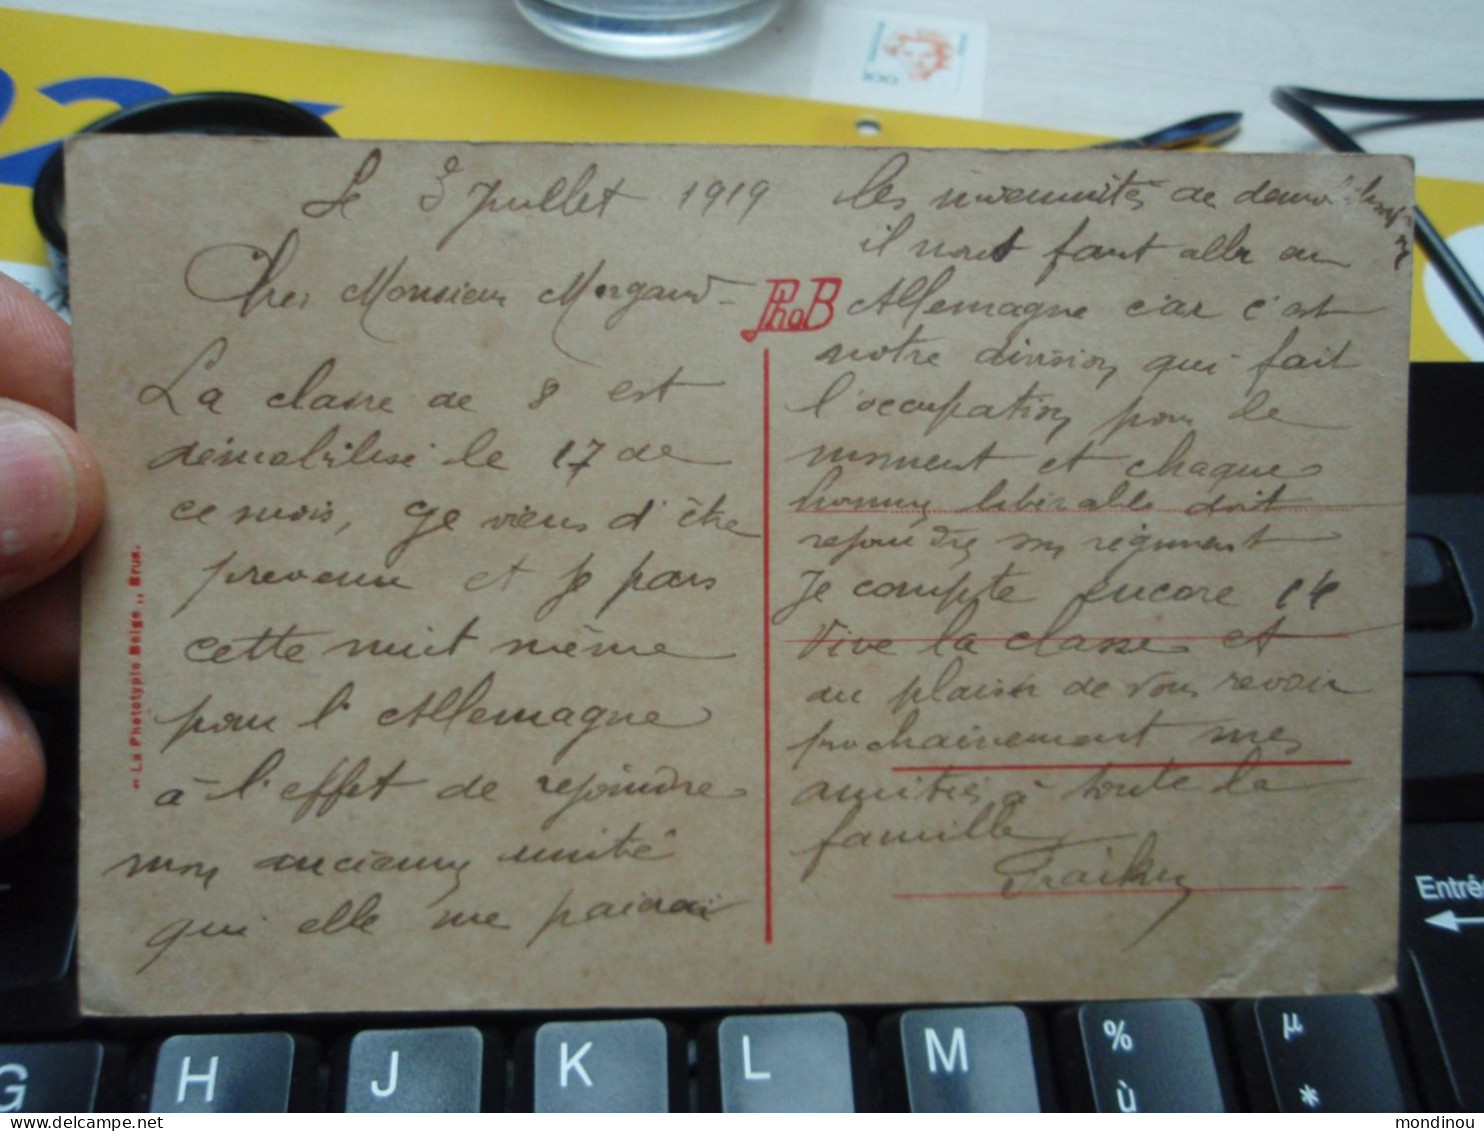 Le 3 Juillet 1919
Cher Monsieur Morgand
La classe de 8 est
démobilisé le 17 de
ce mois, je viens d'être
prevenu et je pars
cette nuit même
pour l'Allemagne
à l'effet de rejoindre
mon ancienne unité
qui elle me paiera
les indemnités de
il nous faut aller en
Allemagne car c'est
notre division qui fait
l'occupation pour le
moment et chaque
homme libérable doit
rejoindre son régiment
Je compte encore 14
Vive la classe et
au plaisir de vous revoir
prochainement mes
amitiés à toute la
famille
PhoB
" La Phototypie Belge ,, Brux.
G
H
J
K
L
M
%
ù
µ
*
Entré
mondinou